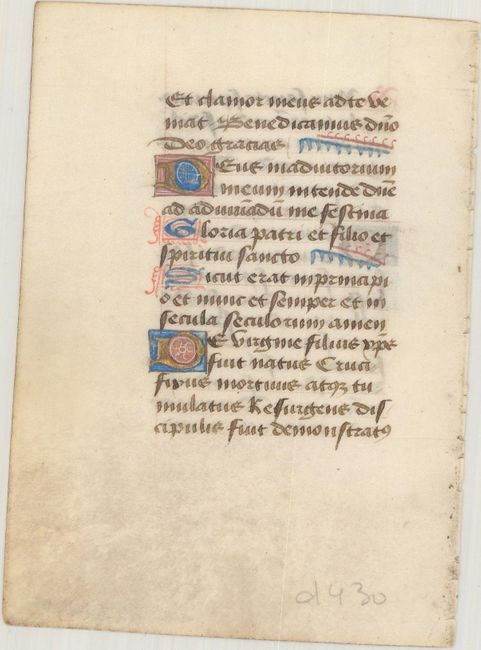 Et clamor meus ad te ve
niat Benedicamus dn̄o
Deo gracias
Deus in adiutorium
meum intende dn̄e
ad adiuuādū me festina
Gloria patri et filio et
spiritui sancto
Sicut erat in principi
o et nunc et semper et in
secula seculorum amen
De virgine filius xp̄s
fuit natus Cruci
fixus mortuus atqꝫ tu
mulatus Resurgens dis
cipulis fuit demonstratꝰ
d430